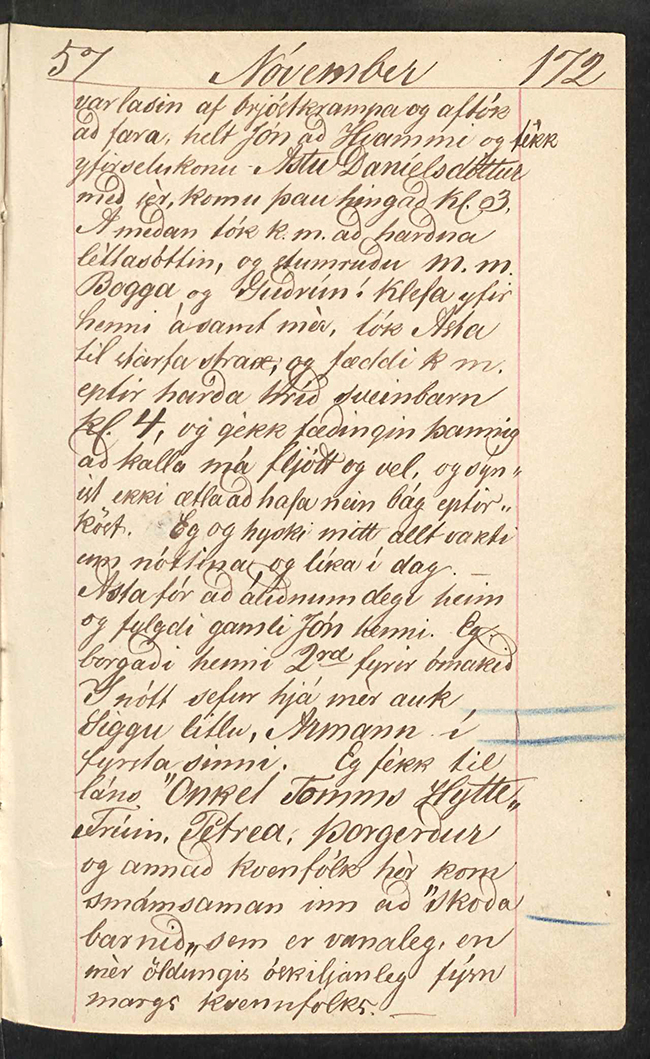 57 Nóvember 172
var lasin af brjóstkrampa og aftók
ad fara, helt Jón ad Hvammi og fékk
yfirsetukonu Astu Daníelsdóttur
med ser, komu þau hingad Kl. 3,
A medan tók k. m. ad hardna
léttasóttin, og stumrudu m. m.
Bogga og Gudrún í Klefa yfir
henni ásamt mèr, tók Asta
til starfa strax, og fæddi k m.
eptir harda hríd sveinbarn
Kl. 4, og gèkk fædingin þannig
ad kalla má fljótt og vel, og sýn„
ist ekki ætla ad hafa nein bág eptir„
köst. Eg og hyski mitt allt vakti
um nóttina og líka í dag. —
Asta fór ad álidnum degi heim
og fylgdi gamli Jón henni. Eg
borgadi henni 2rd fyrir ómakid
I nótt sefur hjá mèr auk
Siggu litlu, Armann í
fyrsta sinni. Eg fékk til
láns "Onkel Tomms Hytte„
Frúin, Pètrea, Þorgerdur
og annad kvenfólk hèr kom
smámsaman inn ad "skoda
barnid„ sem er vanaleg, en
mèr öldungis óskiljanleg fýsn
margs kvennfolks. —